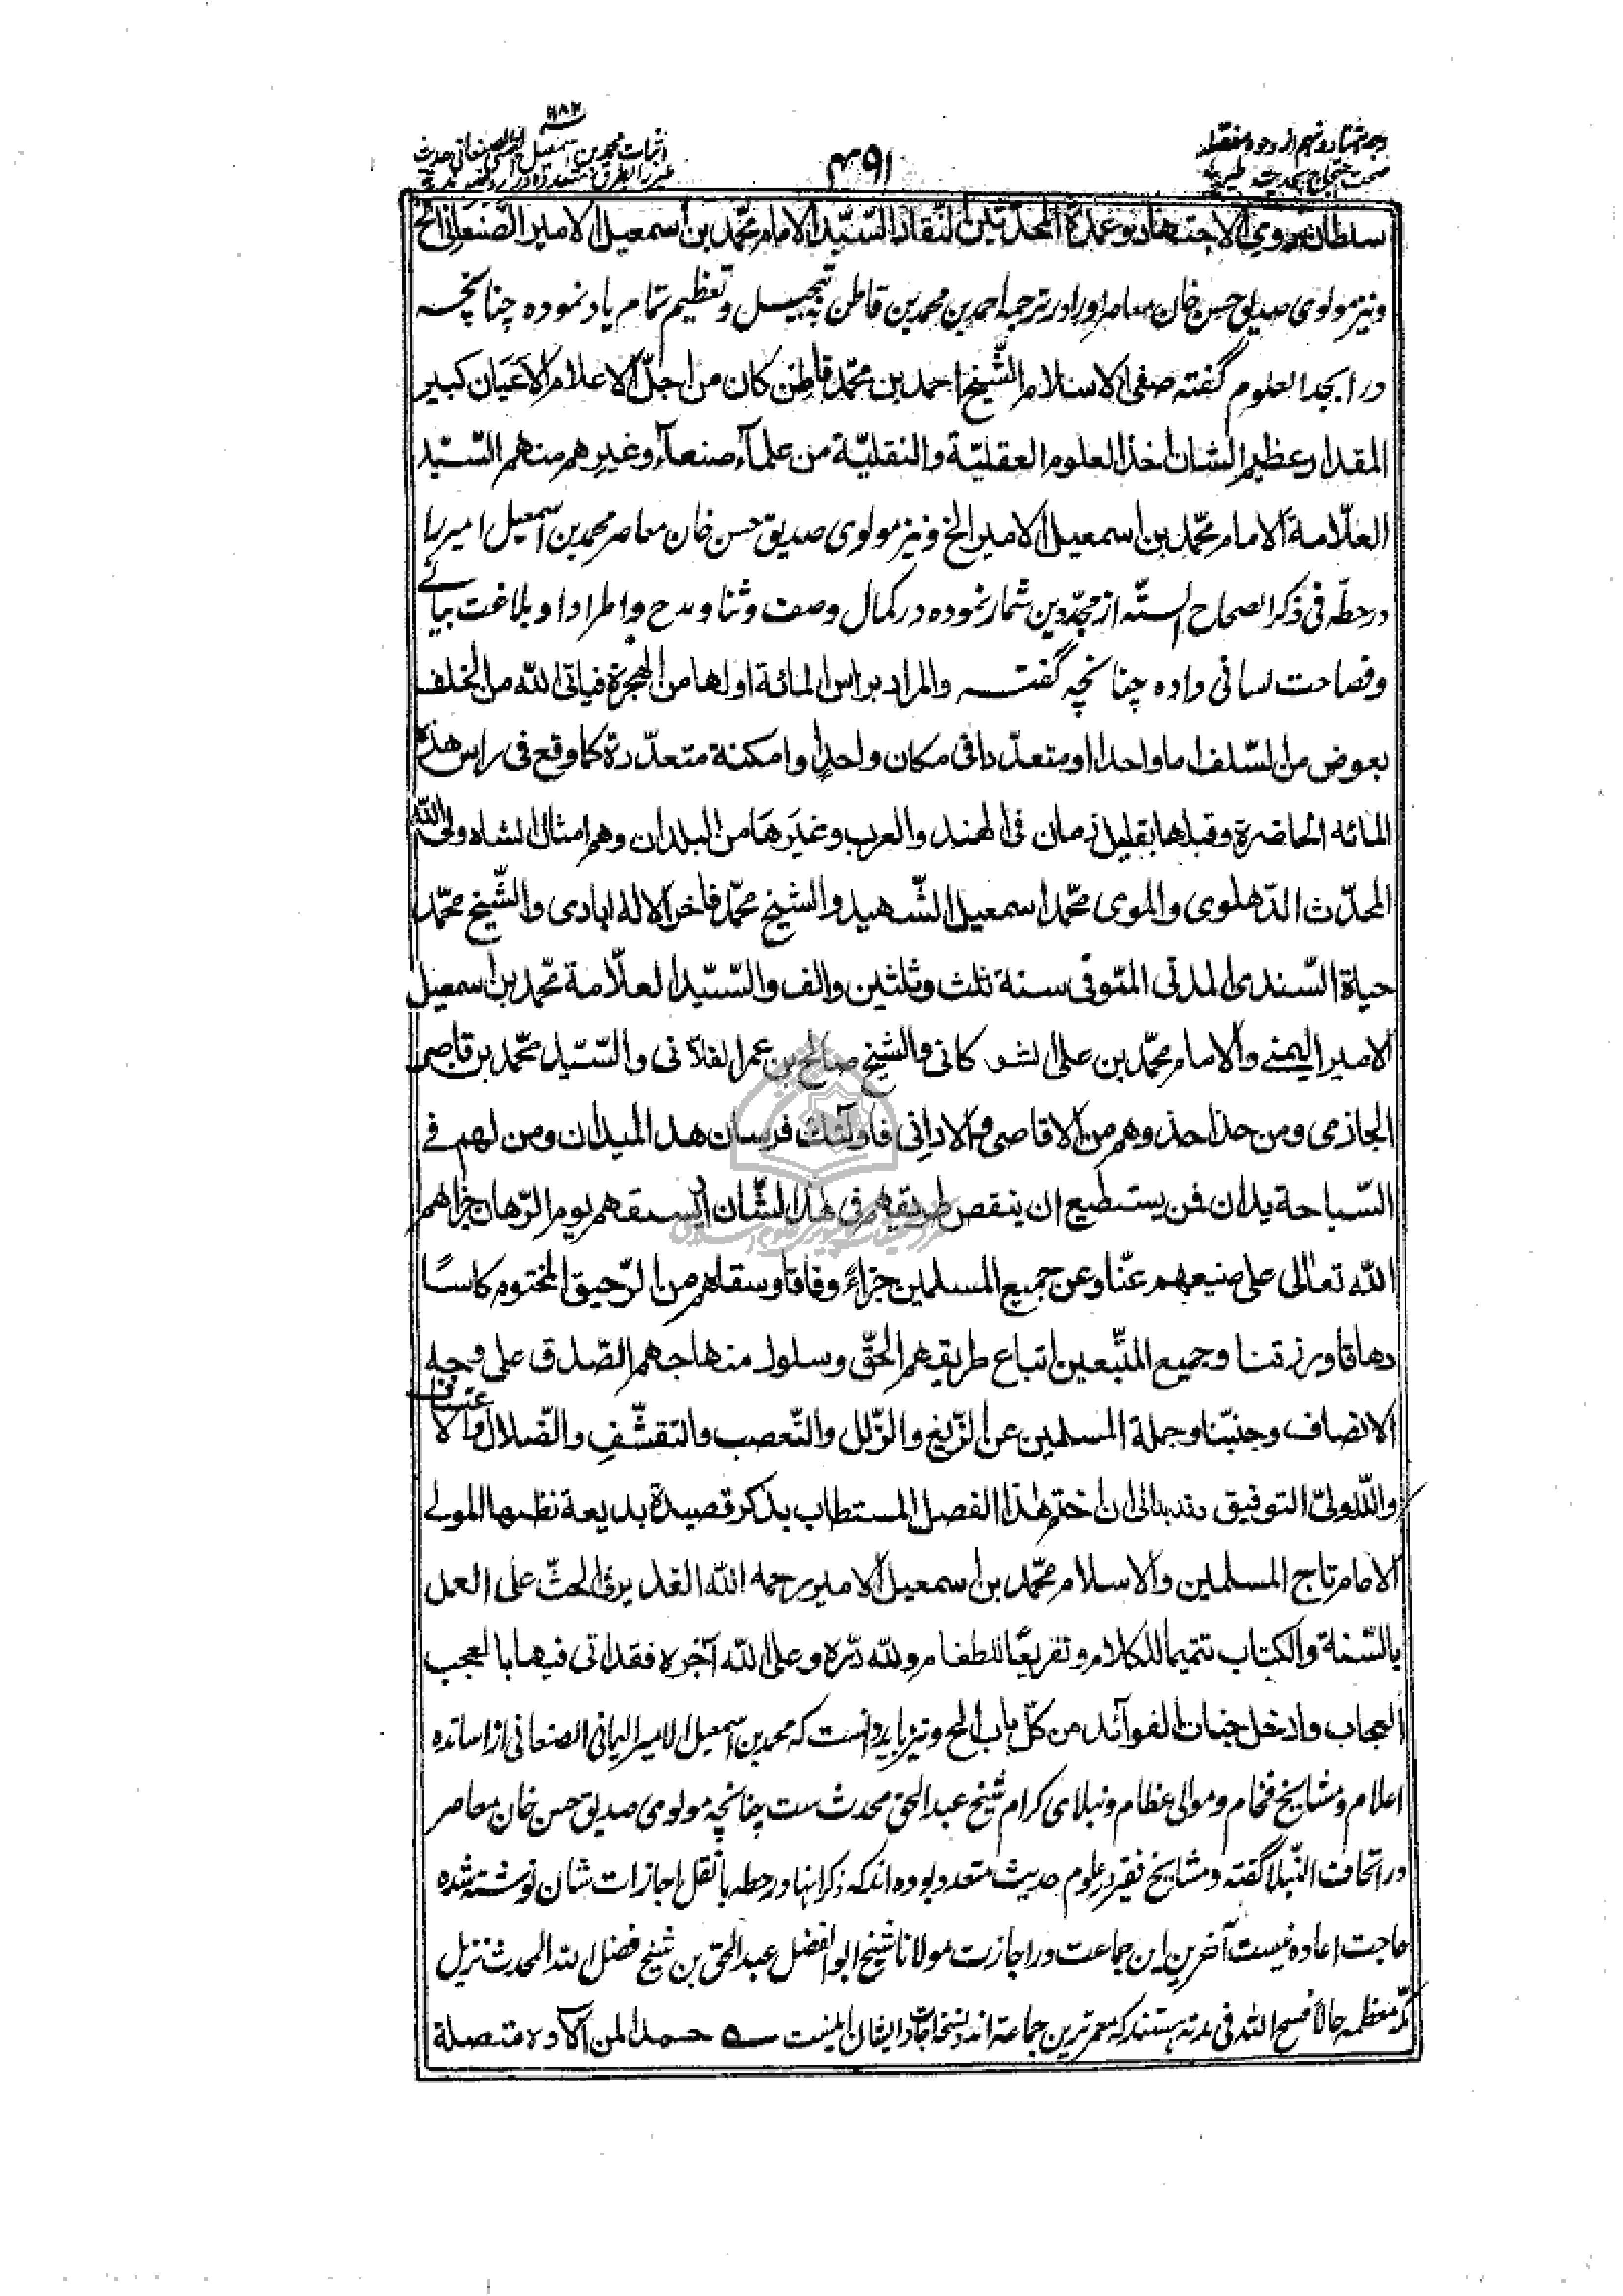 ۴۹۱
سلطان مروي الاجتهاد وعمدة المحدّثين النقاد السّيّد الامام محمّد بن اسمعيل الامير الصّنعاني الخ
ونیز مولوی صدیق حسن خان معاصر او را در ترجمه احمد بن محمد بن قاطن به تبجیل و تعظیم تمام یاد نموده چنانچه
در ابجد العلوم گفته صفى الاسلام الشّيخ احمد بن محمّد قاطن كان من اجلّ الاعلام الاعيان كبير
المقدار عظيم الشان اخذ العلوم العقليّة والنقليّة من علمآء صنعآء وغيرهم منهم السّيّد
العلّامة الامام محمّد بن اسمعيل الامير الخ ونیز مولوی صدیق حسن خان معاصر محمد بن اسمعیل امیر را
در حطّه فی ذکر الصحاح الستّه از مجدّدین شمار نموده در کمال وصف و ثنا و مدح و اطرا داد بلاغت بیانے
و فصاحت لسانی داده چنانچه گفته والمراد براس المائة اولها من الهجرة فياتى الله من الخلف
بعوض من السّلف اما واحدا او متعدّدا فى مكان واحد او امكنة متعدّدة كما وقع فى راس هذه
المائه الحاضرة وقبلها بقليل زمان فى الهند والعرب وغيرها من البلدان وهم امثال الشاه ولى الله
المحدّث الدّهلوى والموى محمّد اسمعيل الشّهيد والشيخ محمّد فاخر الاله ابادى والشّيخ محمّد
حياة السّندى المدنى المتّوفى سنة ثلث وثلثين والف والسّيّد العلّامة محمّد بن اسمعيل
الامير اليمني والامام محمّد بن على الشوكانى والشيخ صالح بن عمر الفلانى والسّيّد محمّد بن قاضى
الجازمى ومن حذا حذوهم من الاقاصى والادانى فاولئك فرسان هذا الميدان ومن لهم فے
السّباحة يدان فمن يستطيع ان ينقص طريقهم فى هذا الشّان او يسبقهم يوم الرّهان جزاهم
الله تعالى على صنيعهم عنّا وعن جميع المسلمين جزاءً وفاقا وسقاهم من الرّحيق المختوم كاسًا
دهاقا ورزقنا وجميع المتّبعين اتباع طريقهم الحقّ وسلوك منهاجهم الصّدق على وجه
الانصاف وجنّبنا وجملة المسلمين عن الزّيغ والزّلل والتّعصب والتقشّف والضّلال والاعتساف
والله ولىّ التوفيق بدا لى ان اختم هذا الفصل المستطاب بذكر قصيدة بديعة نظمها المولے
الامام تاج المسلمين والاسلام محمّد بن اسمعيل الامير رحمه الله القدير فى الحثّ على العمل
بالسّنة والكتاب تتميما للكلام وتفريعًا للطغام ولله درّه وعلى الله آجره فقد اتى فيها بالعجب
العجاب وادخل جنان الفوآئد من كلّ باب الخ ونیز باید دانست که محمد بن اسمعیل الامیر الیمانی الصنعانی از اساتده
اعلام و مشایخ فخام و موالی عظام و نبلای کرام شیخ عبد الحق محدث ست چنانچه مولوی صدیق حسن خان معاصر
در اتحاف النّبلا گفته و مشایخ فقیر در علوم حدیث متعدد بوده اند که ذکر اینها در حطه با نقل اجازات شان نوشته شده
حاجت اعاده نیست آخرین این جماعت در اجازت مولانا شیخ ابو الفضل عبد الحق بن شیخ فضل الله المحدث نزیل
مکّه معظمه حالا فسح الله فی مدته هستند که معمر ترین جماعة اند و نسخه اجازت ایشان اینست حمدا لمن آلآوه متصلة